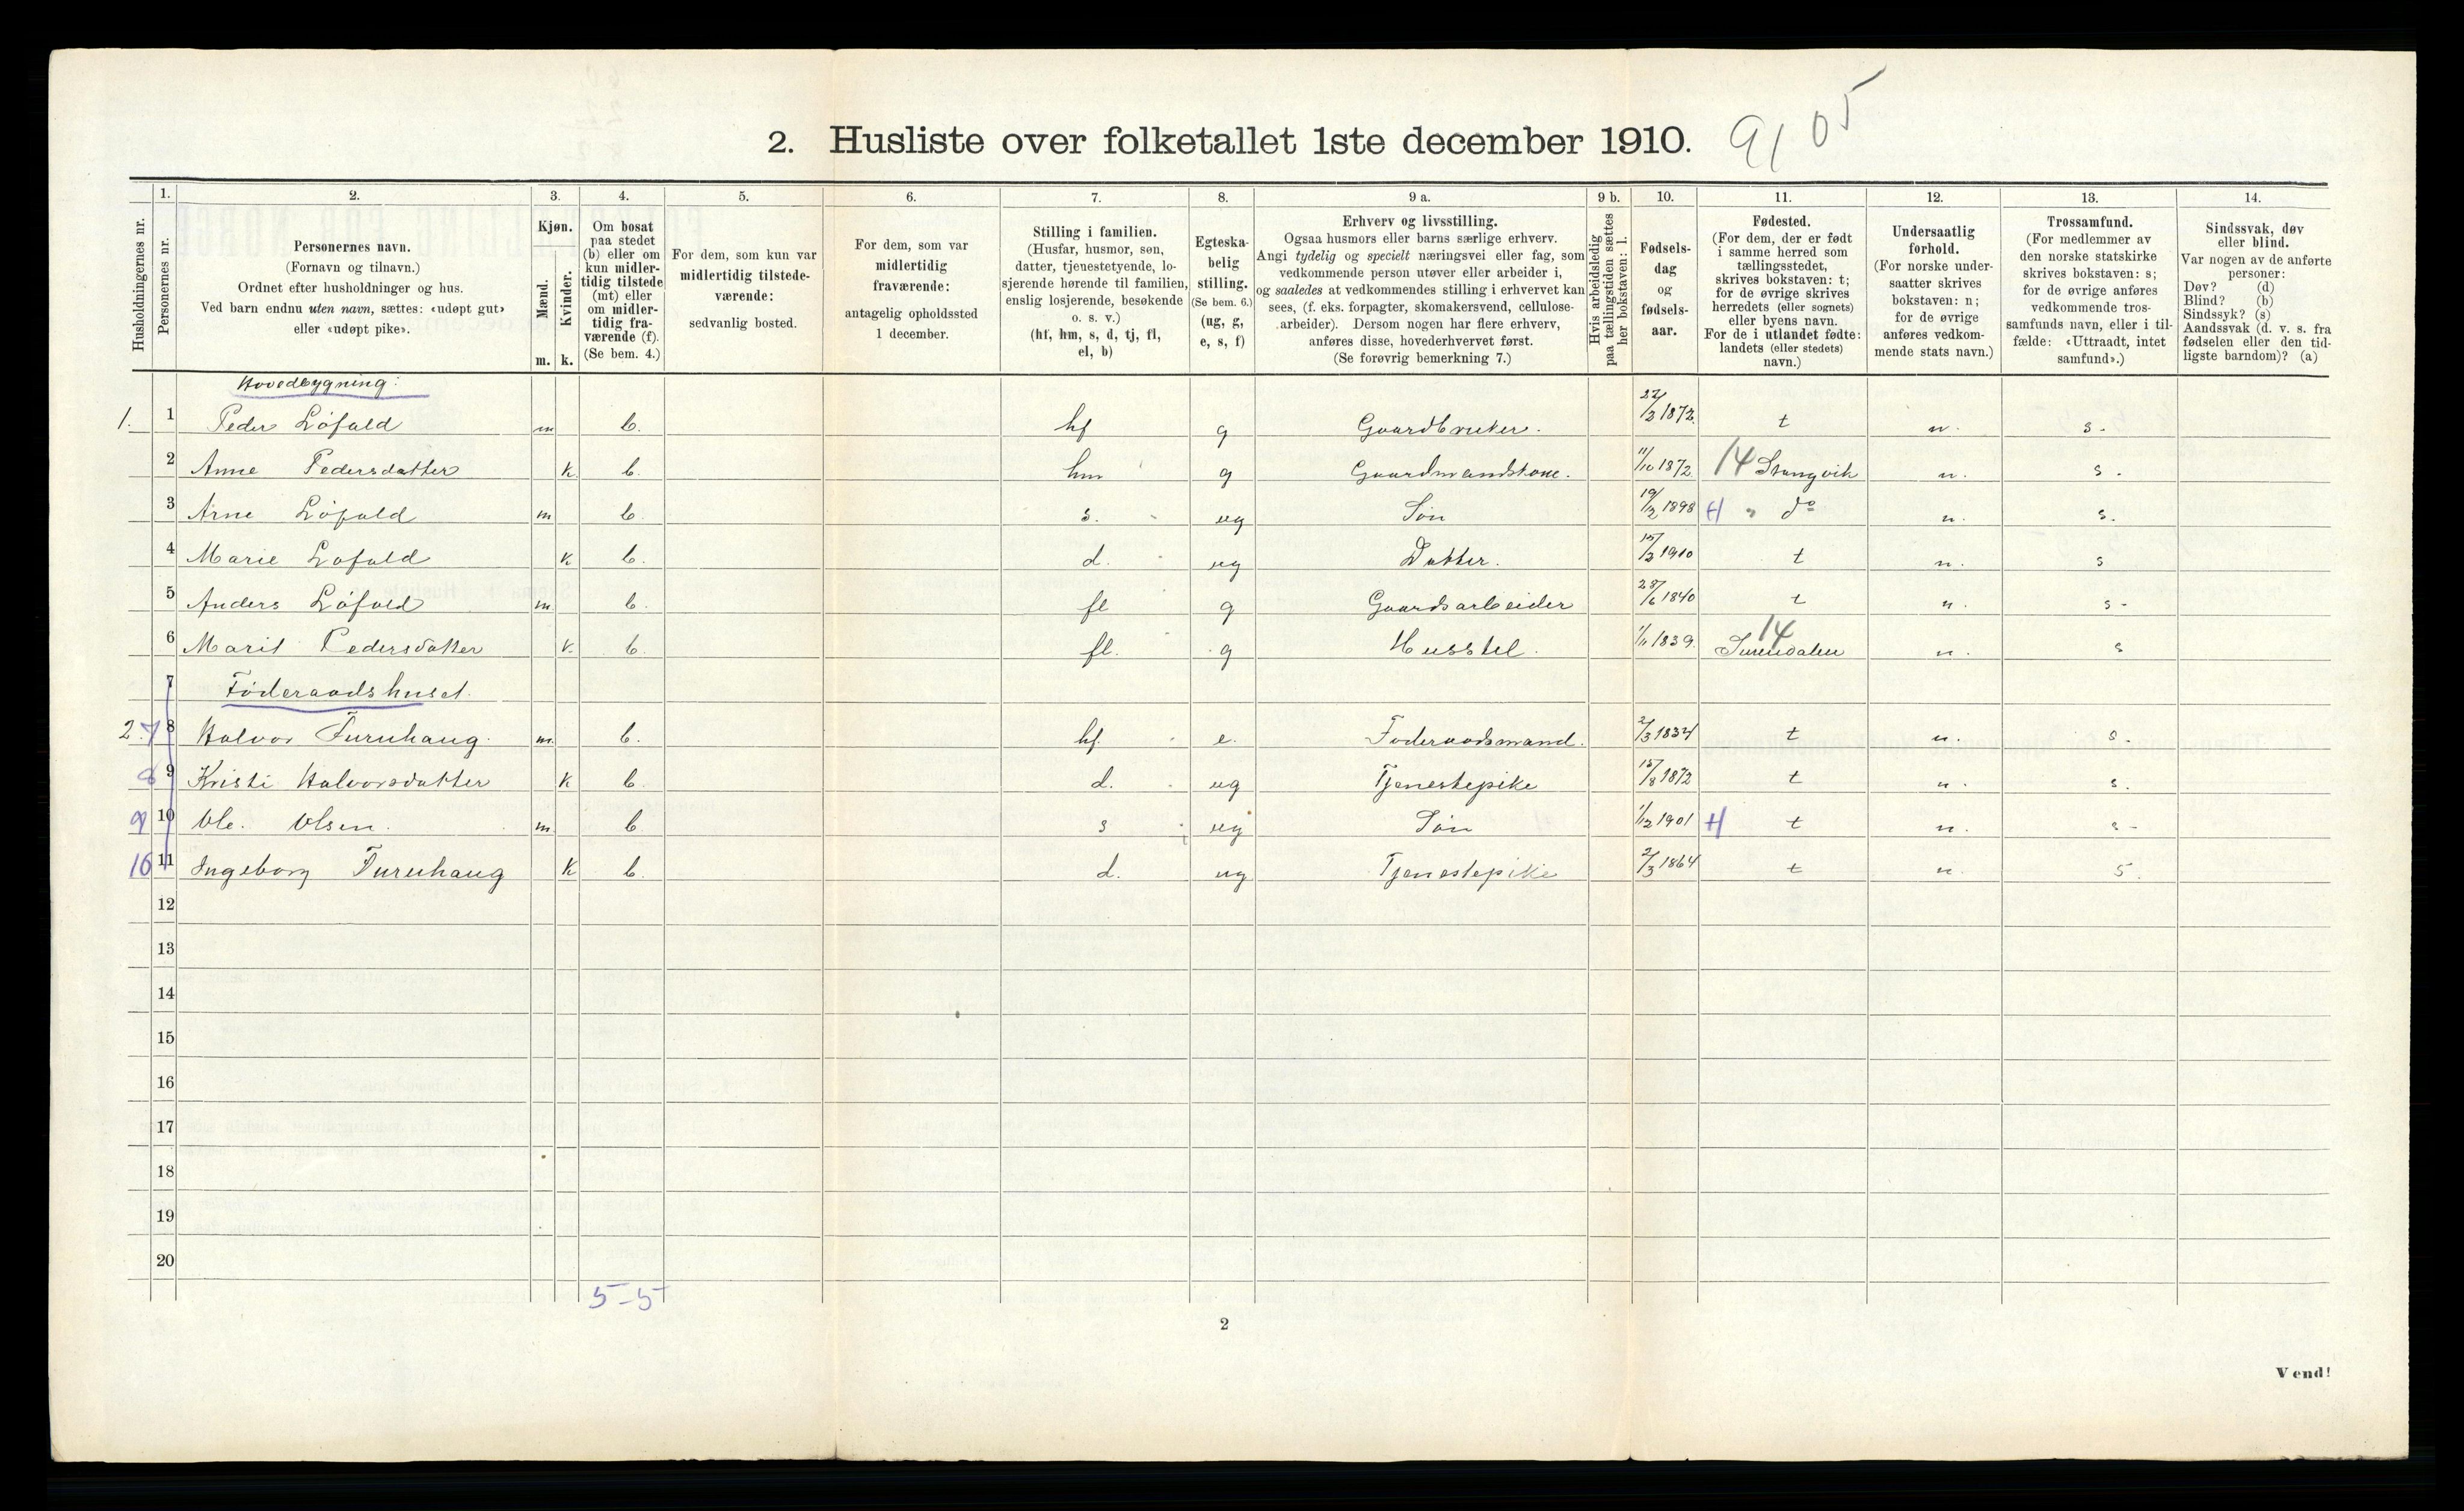 2. Husliste over folketallet 1ste december 1910. 9105
Husholdningernes nr.
1. Personernes nr.
2. Personernes navn. (Fornavn og tilnavn.) Ordnet efter husholdninger og hus. Ved barn endnu uten navn, sættes: «udøpt gut» eller «udøpt pike».
3. Kjøn. Mænd. m. Kvinder. k.
4. Om bosat paa stedet (b) eller om kun midlertidig tilstede (mt) eller om midlertidig fraværende (f). (Se bem. 4.)
5. For dem, som kun var midlertidig tilstedeværende: sedvanlig bosted.
6. For dem, som var midlertidig fraværende: antagelig opholdssted 1 december.
7. Stilling i familien. (Husfar, husmor, søn, datter, tjenestetyende, losjerende hørende til familien, enslig losjerende, besøkende o. s. v.) (hf, hm, s, d, tj, fl, el, b)
8. Egteskabelig stilling. (Se bem. 6.) (ug, g, e, s, f)
9 a. Erhverv og livsstilling. Ogsaa husmors eller barns særlige erhverv. Angi tydelig og specielt næringsvei eller fag, som vedkommende person utøver eller arbeider i, og saaledes at vedkommendes stilling i erhvervet kan sees, (f. eks. forpagter, skomakersvend, cellulosearbeider). Dersom nogen har flere erhverv, anføres disse, hovederhvervet først. (Se forøvrig bemerkning 7.)
9 b. Hvis arbeidsledig paa tællingstiden sættes her bokstaven: l.
10. Fødselsdag og fødselsaar.
11. Fødested. (For dem, der er født i samme herred som tællingsstedet, skrives bokstaven: t; for de øvrige skrives herredets (eller sognets) eller byens navn. For de i utlandet fødte: landets (eller stedets) navn.)
12. Undersaatlig forhold. (For norske undersaatter skrives bokstaven: n; for de øvrige anføres vedkommende stats navn.)
13. Trossamfund. (For medlemmer av den norske statskirke skrives bokstaven: s; for de øvrige anføres vedkommende trossamfunds navn, eller i tilfælde: «Uttraadt, intet samfund».)
14. Sindssvak, døv eller blind. Var nogen av de anførte personer: Døv? (d) Blind? (b) Sindssyk? (s) Aandssvak (d. v. s. fra fødselen eller den tidligste barndom)? (a)
Hovedbygning:
1. 1 Peder Löfald m b. hf g Gaardbruker. 22/2 1872. t n. s.
2 Anne Pedersdatter k. b. hm g Gaardmandskone. 11/10 1872 14 Stangvik n. s.
3 Arne Löfald m b. s. ug Søn 19/2 1898 H " do n. s.
4 Marie Lofald k b. d. ug Datter. 15/2 1910 t n. s
5 Anders Löfald m b. fl g Gaardsarbeider 28/6 1840 t n. s
6 Marit Pedersdatter k. b. fl. g Husstel. 1/11 1839. 14 Surendalen n. s
7 Føderaadshuset.
2. 7 8 Halvor Furuhaug. m. b. hf. e. Føderaadsmand. 2/3 1834 t n. s.
8 9 Kristi Halvorsdatter k b. d. ug Tjenestepike 15/8 1872 t n. s.
9 10 Ole. Olsen. m. b s ug Søn 1/12 1901 H t n. s
10 11 Ingeborg Furuhaug k b. d. ug Tjenestepike 2/3 1864 t n. s.
12
13
14
15
16
17
18
19
20
5-5
2
Vend!